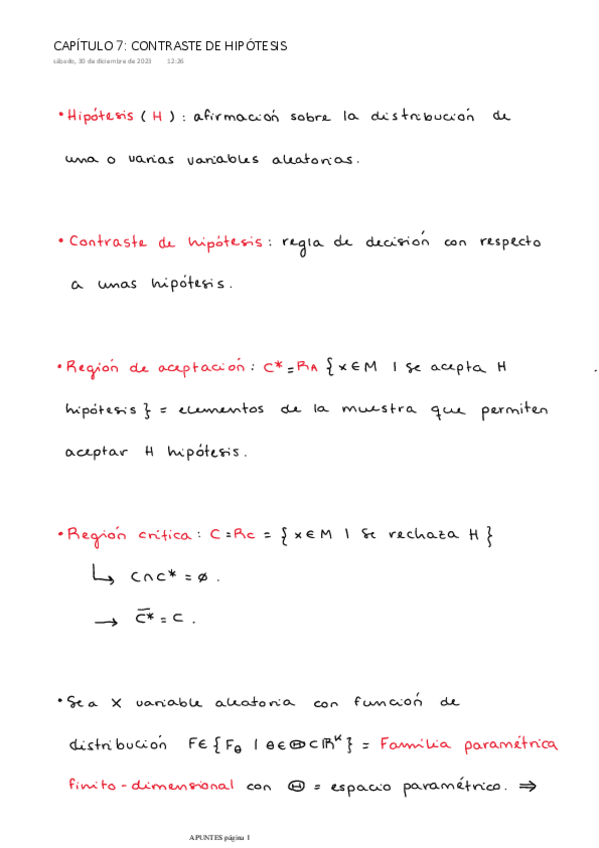 CAPÍTULO 7: CONTRASTE DE HIPÓTESIS
sábado, 30 de diciembre de 2023 12:26
• Hipótesis (H): afirmación sobre la distribución de
una o varias variables aleatorias.
• Contraste de hipótesis: regla de decisión con respecto
a unas hipótesis.
• Región de aceptación: C* = RA {x∈M | se acepta H
hipótesis} = elementos de la muestra que permiten
aceptar H hipótesis.
• Región crítica: C = Rc = {x∈M | se rechaza H}
↳ C∩C* = ∅.
→ C̅*̅ = C.
• Sea X variable aleatoria con función de
distribución F∈{Fθ | θ∈Θ⊂ℝᴷ} = Familia paramétrica
finito-dimensional con Θ = espacio paramétrico. ⇒
APUNTES página 1